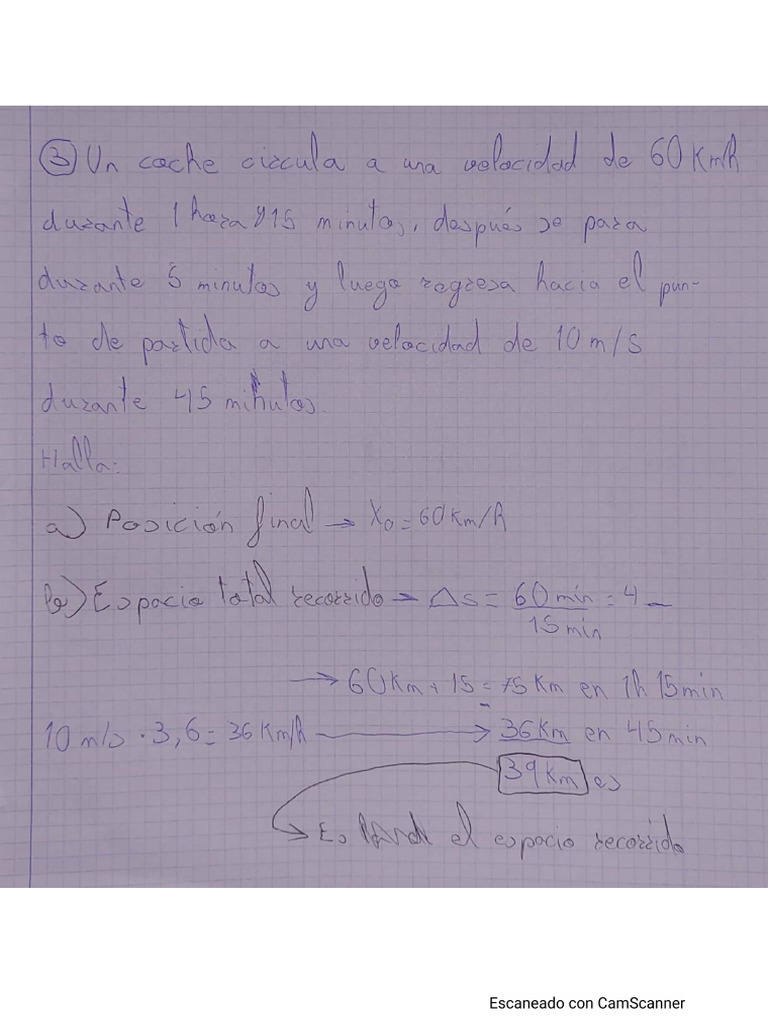 ③ Un coche circula a una velocidad de 60 Km/h
durante 1 hora y 15 minutos, después se para
durante 5 minutos y luego regresa hacia el pun-
to de partida a una velocidad de 10 m/s
durante 45 minutos.
Halla:
a) Posición final → X₀ = 60 Km/h
b) Espacio total recorrido → Δs = 60 min / 15 min = 4 –
→ 60 Km + 15 = 75 Km en 1h 15min
10 m/s · 3,6 = 36 Km/h → 36 Km en 45 min
39 Km es
→ Es el espacio recorrido
Escaneado con CamScanner